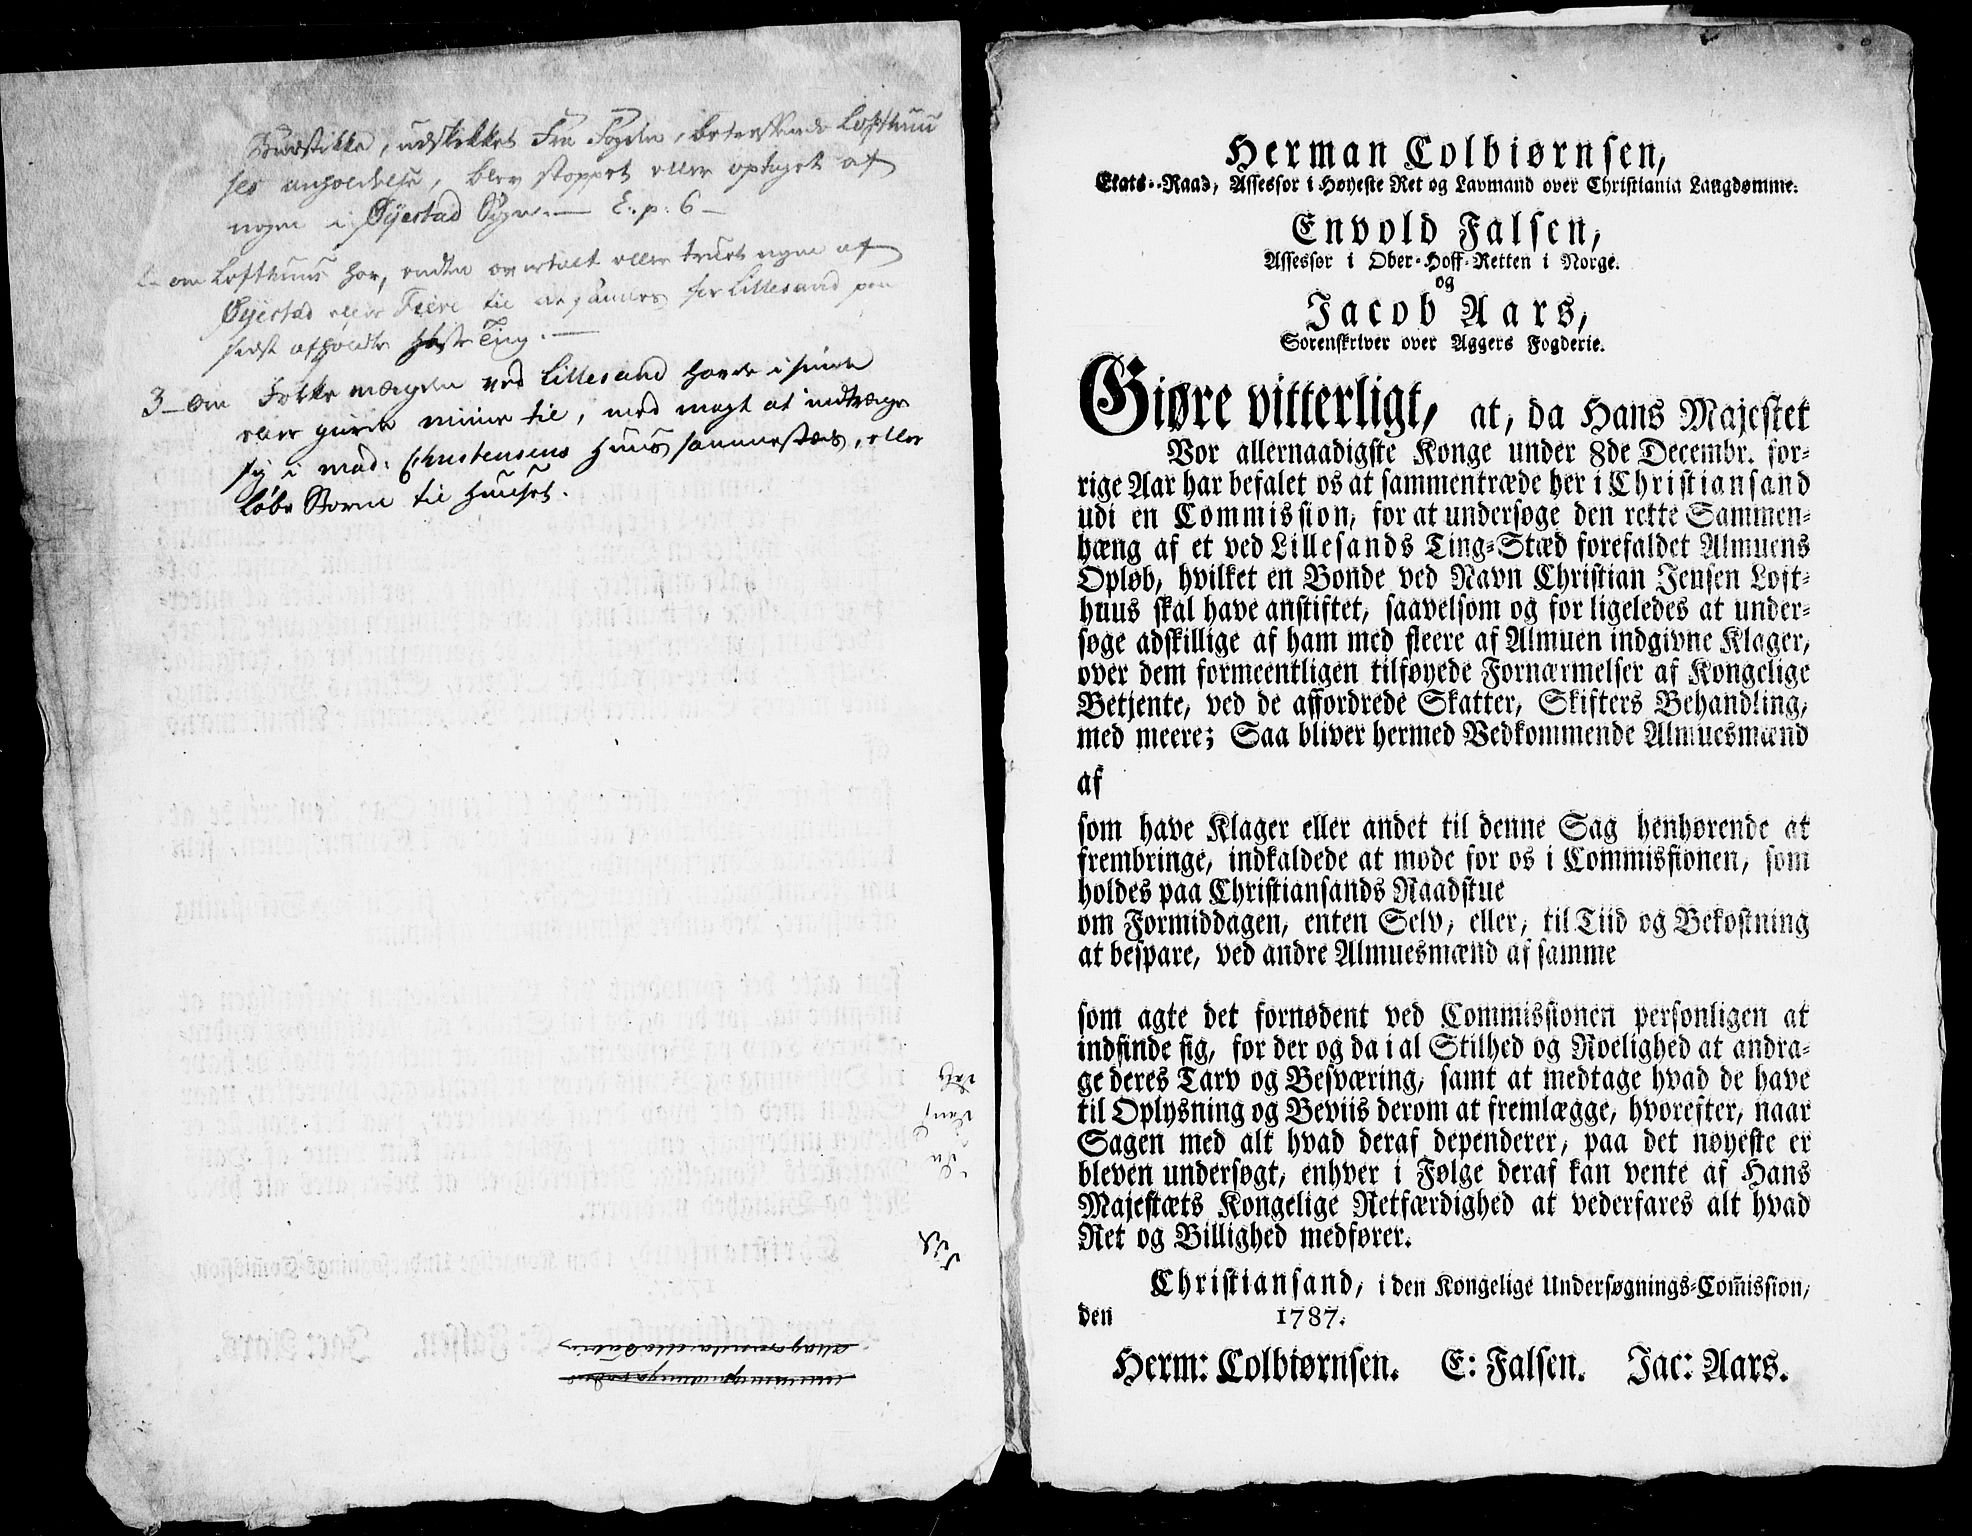 Budstikke, udskikket Fra Fogden, betreffende Lofthuu
ses anholdelse, blev stoppet eller optaget af
nogen i Øyestad Sogn. — E. p: 6 —
2 - om Lofthuus har, enten overtalt eller truet nogen af
Øyestad eller Fiere til at samles for Lillesand paa
sidst afholdte Høste Ting. —
3 - om Folke mængden ved Lillesand havde i sinde
eller giorde mine til, med magt at indtrænge
sig i mad. Christensens Huus sammestæds, eller
løbe Storm til Huuset.
Herman Colbiørnsen,
Etats-Raad, Assessor i Høyeste Ret og Lavmand over Christiania Laugdømme.
Envold Falsen,
Assessor i Ober-Hoff-Retten i Norge.
og
Jacob Aars,
Sorenskriver over Aggers Fogderie.
Giøre vitterligt, at, da Hans Majestet
Vor allernaadigste Konge under 8de Decembr. for-
rige Aar har befalet os at sammentræde her i Christiansand
udi en Commission, for at undersøge den rette Sammen-
hæng af et ved Lillesands Ting-Stæd forefaldet Almuens
Opløb, hvilket en Bonde ved Navn Christian Jensen Loft-
huus skal have anstiftet, saavelsom og for ligeledes at under-
søge adskillige af ham med fleere af Almuen indgivne Klager,
over dem formeentligen tilføyede Fornærmelser af Kongelige
Betjente, ved de affordrede Skatter, Skifters Behandling,
med meere; Saa bliver hermed Vedkommende Almuesmænd
af
som have Klager eller andet til denne Sag henhørende at
frembringe, indkaldede at møde for os i Commissionen, som
holdes paa Christiansands Raadstue
om Formiddagen, enten Selv, eller, til Tiid og Bekostning
at bespare, ved andre Almuesmænd af samme
som agte det fornødent ved Commissionen personligen at
indfinde sig, for der og da i al Stilhed og Roelighed at andra-
ge deres Tarv og Besværing, samt at medtage hvad de have
til Oplysning og Beviis derom at fremlægge, hvorefter, naar
Sagen med alt hvad deraf dependerer, paa det nøyeste er
bleven undersøgt, enhver i Følge deraf kan vente af Hans
Majestæts Kongelige Retfærdighed at vederfares alt hvad
Ret og Billighed medfører.
Christiansand, i den Kongelige Undersøgnings-Com̄ission,
den 1787.
Herm: Colbiørnsen. E: Falsen. Jac: Aars.